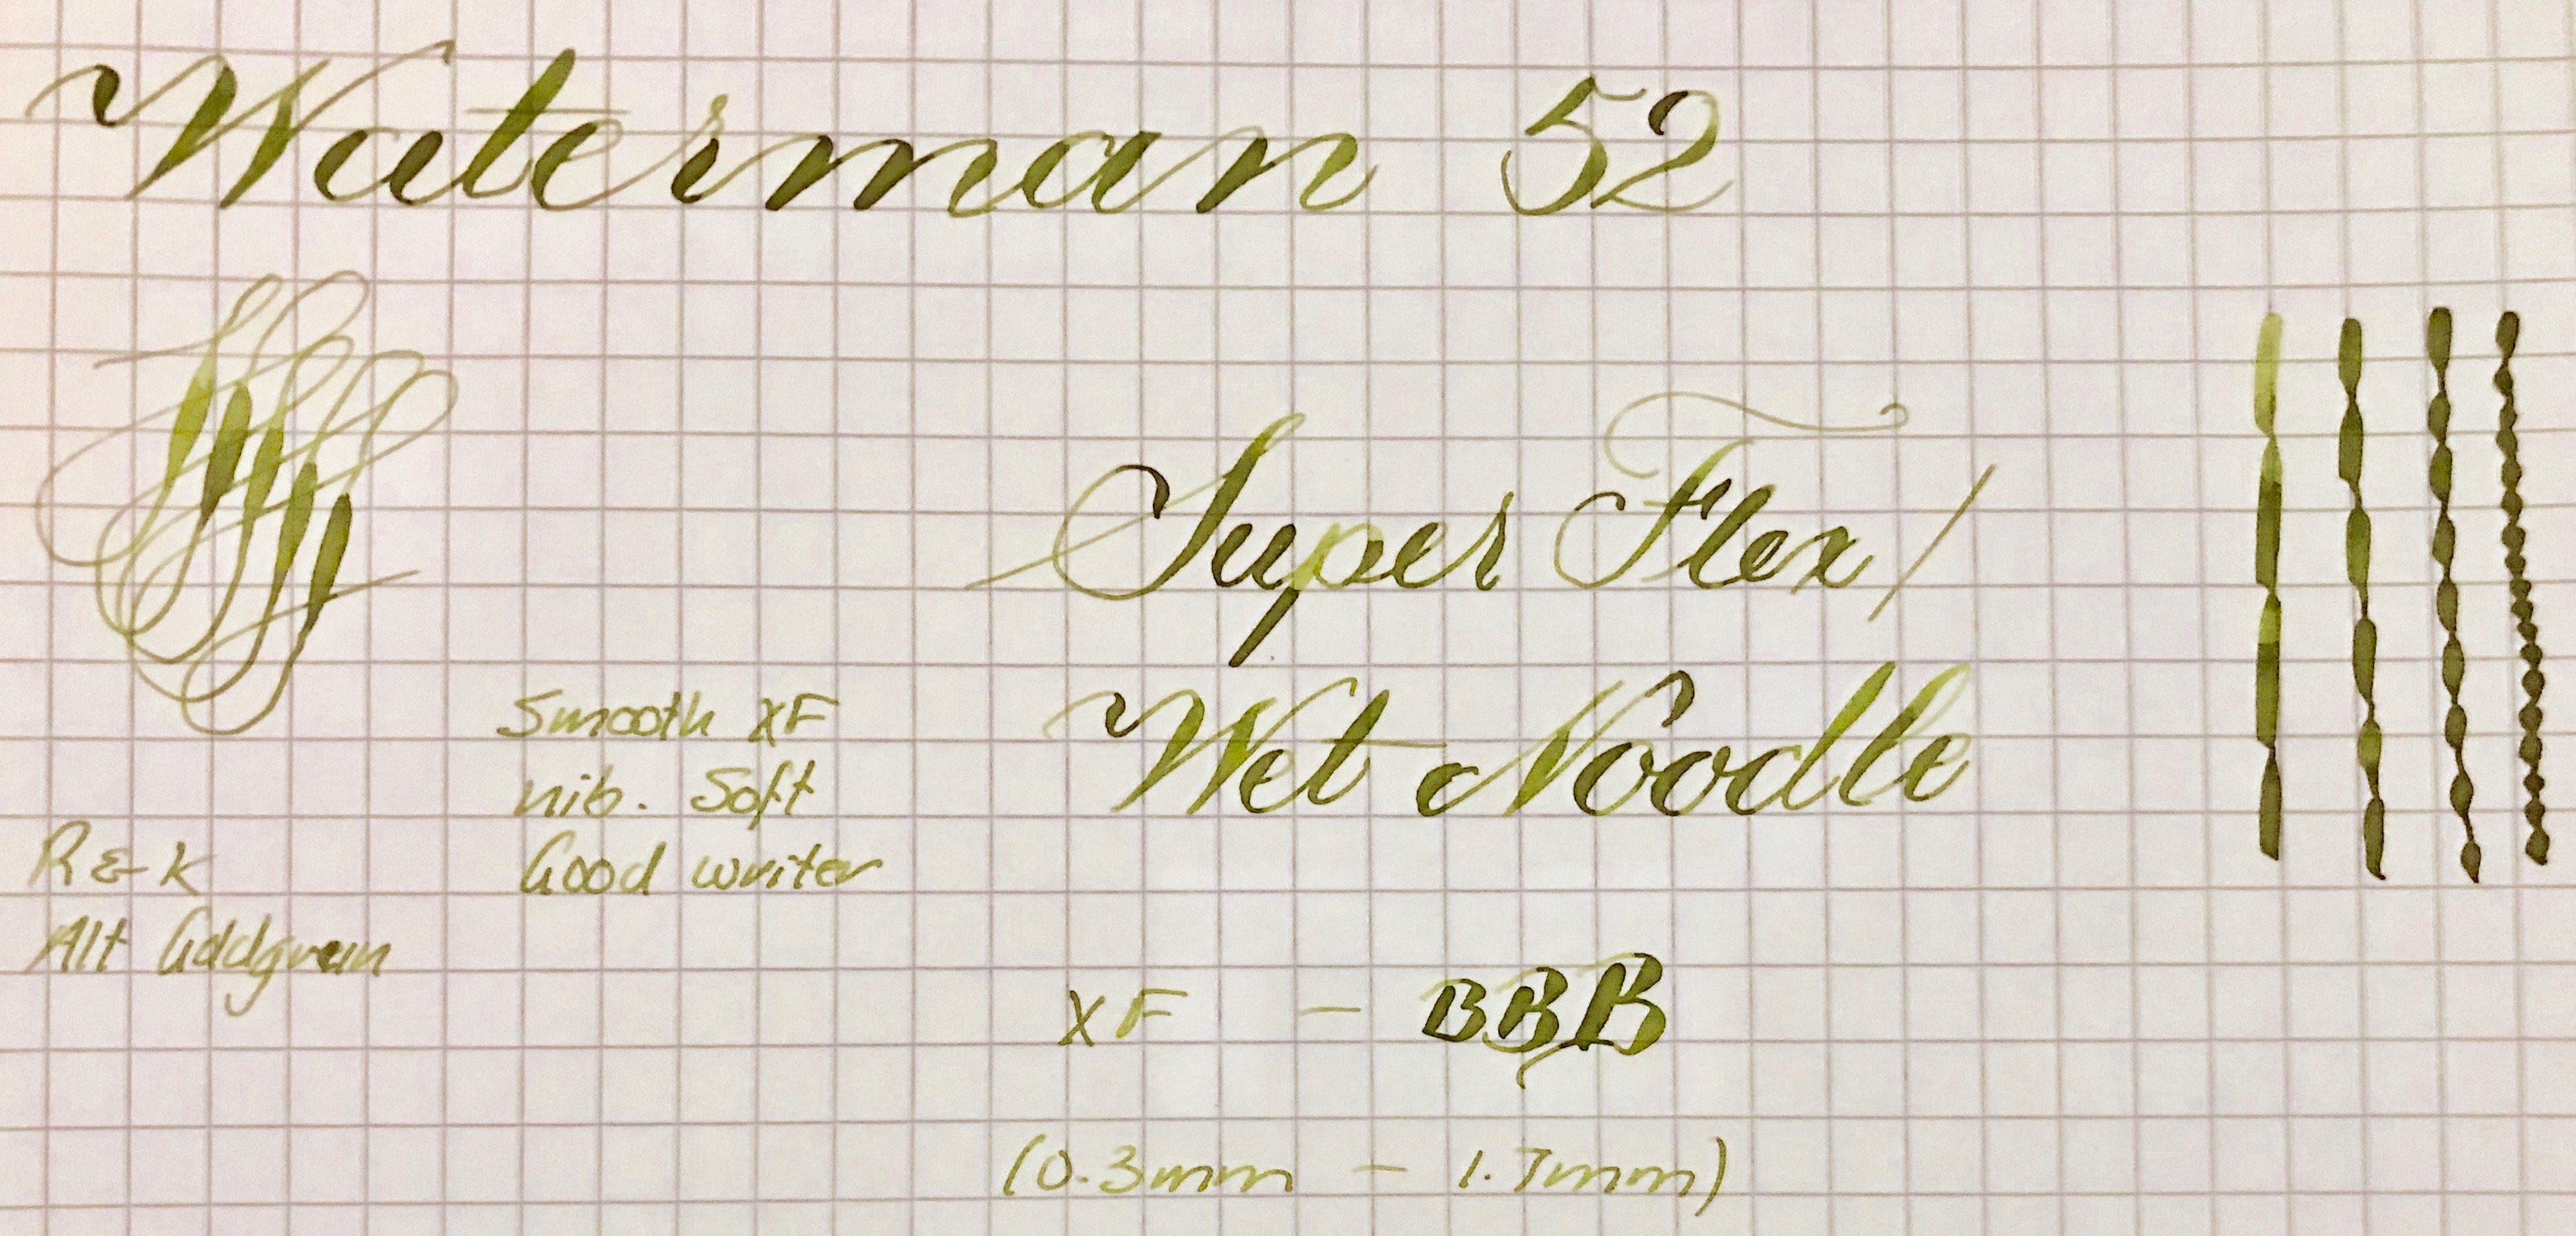 Waterman 52
Super Flex/
Wet Noodle
Smooth XF
nib. Soft
Good writer
R & K
Alt Goldgrun
XF - BBB
(0.3mm - 1.7mm)